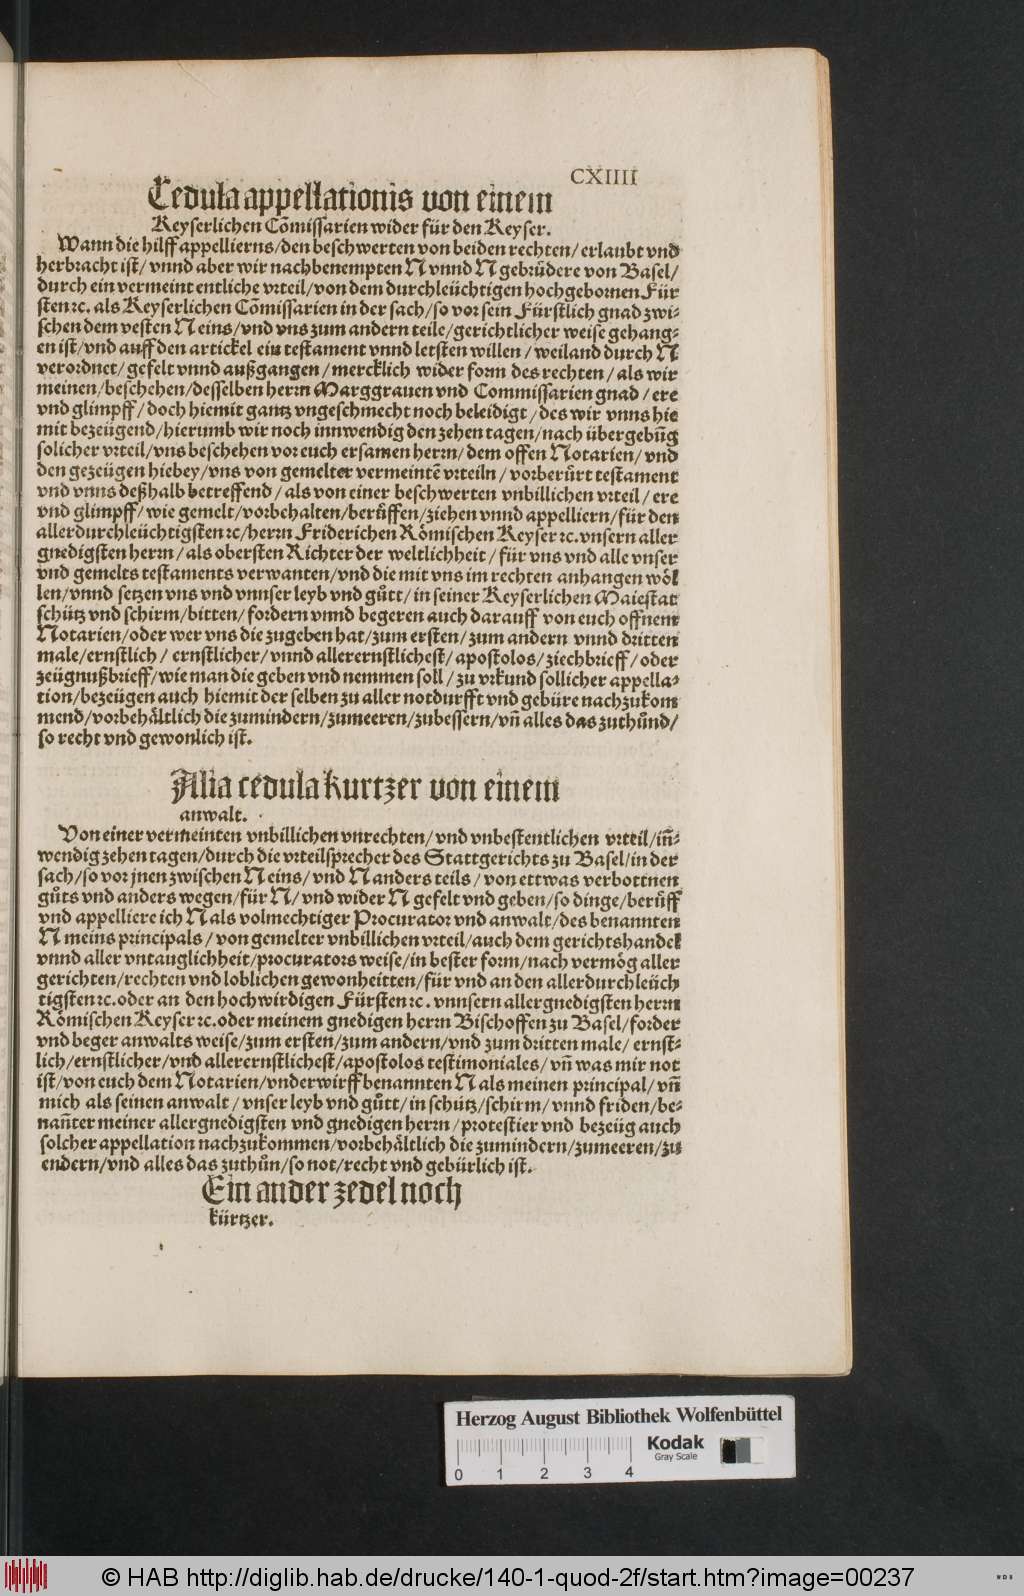 CXIIII
Cedula appellationis von einem
Keyserlichen Cõmissarien wider für den Keyser.
Wann die hilff appellierns/den beschwerten von beiden rechten/erlaubt vnd
herbracht ist/ vnnd aber wir nachbenempten N vnnd N gebrüdere von Basel/
durch ein vermeint entliche vrteil/von dem durchleüchtigen hochgebornen Für
sten ⁊c. als Keyserlichen Cõmissarien in der sach/so vor sein Fürstlich gnad zwi-
schen dem vesten N eins/vnd vns zum andern teile/gerichtlicher weise gehang-
en ist/vnd auff den artickel ein testament vnnd letsten willen/weiland durch N
verordnet/gefelt vnnd außgangen/mercklich wider form des rechten/als wir
meinen/beschehen/desselben herrn Marggrauen vnd Commissarien gnad/ere
vnd glimpff/doch hiemit gantz vngeschmecht noch beleidigt/des wir vnns hie
mit bezeügend/hierumb wir noch innwendig den zehen tagen/nach übergebũg
solicher vrteil/vns beschehen vor euch ersamen herrn/dem offen Notarien/vnd
den gezeügen hiebey/vns von gemelter vermeintẽ vrteiln/vorberůrt testament
vnd vnns deßhalb betreffend/als von einer beschwerten vnbillichen vrteil/ere
vnd glimpff/wie gemelt/vorbehalten/berůffen/ziehen vnnd appelliern/für den
allerdurchleüchtigsten ⁊c/herrn Friderichen Römischen Keyser ⁊c. vnsern aller
gnedigsten herrn/als obersten Richter der weltlichheit/für vns vnd alle vnser
vnd gemelts testaments verwanten/vnd die mit vns im rechten anhangen wöl
len/vnnd setzen vns vnd vnnser leyb vnd gůtt/in seiner Keyserlichen Maiestat
schütz vnd schirm/bitten/fordern vnnd begeren auch darauff von euch offnem
Notarien/oder wer vns die zugeben hat/zum ersten/zum andern vnnd dritten
male/ernstlich/ernstlicher/vnnd allerernstlichest/apostolos/ziechbrieff/oder
zeügnußbrieff/wie man die geben vnd nemmen soll/zu vrkund sollicher appella-
tion/bezeügen auch hiemit der selben zu aller notdurfft vnd gebüre nachzukom
mend/vorbehältlich die zumindern/zumeeren/zubessern/vñ alles das zuthůnd/
so recht vnd gewonlich ist.
Alia cedula kurtzer von einem
anwalt.
Von einer vermeinten vnbillichen vnrechten/vnd vnbestentlichen vrteil/iñ-
wendig zehen tagen/durch die vrteilsprecher des Stattgerichts zu Basel/in der
sach/so vor jnen zwischen N eins/vnd N anders teils/von ettwas verbottnen
gůts vnd anders wegen/für N/vnd wider N gefelt vnd geben/so dinge/berůff
vnd appelliere ich N als volmechtiger Procurator vnd anwalt/des benannten
N meins principals/von gemelter vnbillichen vrteil/auch dem gerichtshandel
vnnd aller vntauglichheit/procurators weise/in bester form/nach vermög aller
gerichten/rechten vnd loblichen gewonheitten/für vnd an den allerdurchleüch
tigsten ⁊c. oder an den hochwirdigen Fürsten ⁊c. vnnsern allergnedigsten herrn
Römischen Keyser ⁊c. oder meinem gnedigen herrn Bischoffen zu Basel/forder
vnd beger anwalts weise/zum ersten/zum andern/vnd zum dritten male/ernst-
lich/ernstlicher/vnd allerernstlichest/apostolos testimoniales/vñ was mir not
ist/von euch dem Notarien/vnderwirff benannten N als meinen principal/vñ
mich als seinen anwalt/vnser leyb vnd gůtt/in schütz/schirm/vnnd friden/be-
nañter meiner allergnedigsten vnd gnedigen herrn/protestier vnd bezeüg auch
solcher appellation nachzukommen/vorbehältlich die zumindern/zumeeren/zu
endern/vnd alles das zuthůn/so not/recht vnd gebürlich ist.
Ein ander zedel noch
kürtzer.
Herzog August Bibliothek Wolfenbüttel
Kodak
Gray Scale
0 1 2 3 4
© HAB http://diglib.hab.de/drucke/140-1-quod-2f/start.htm?image=00237